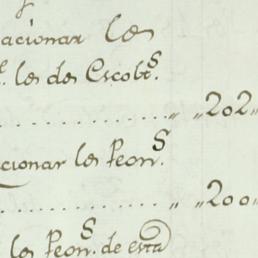 acionar los
los de Escobs
"202"
cionar los Peons
"200"
los Peons de esta